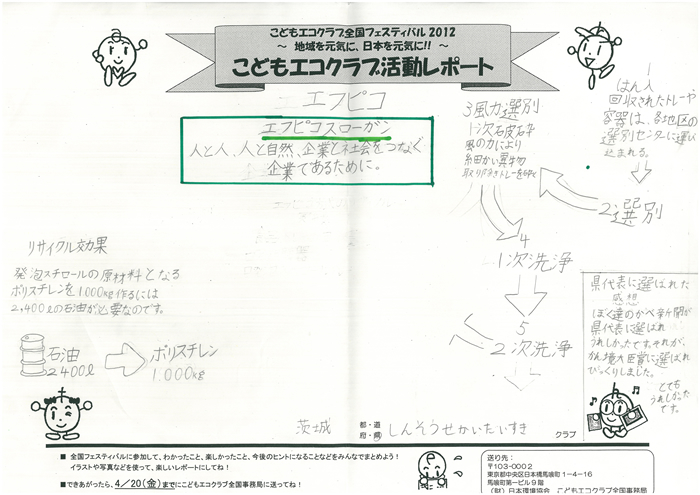 こどもエコクラブ全国フェスティバル 2012
～ 地域を元気に、日本を元気に!! ～
こどもエコクラブ活動レポート
エフピコ
エフピコスローガン
人と人、人と自然、企業と社会をつなぐ
企業であるために。
リサイクル効果
発泡スチロールの原材料となる
ポリスチレンを1.000kg作るには
2,400ℓの石油が必要なのです。
石油
2400ℓ
ポリスチレン
1.000kg
1
はん入
回収されたトレーや
容器は、各地区の
選別センターに運び
込まれる。
2 選別
3風力選別
1次破砕
風の力により
細かい異物
取り除きトレーを
4
1次洗浄
5
2次洗浄
県代表に選ばれた
感想
ぼく達のかべ新聞が
県代表に選ばれ
うれしかったです。それが、
かん境大臣賞に選ばれ
びっくりしました。
とても
うれしかった
です。
茨城 都・道 府・県 しんそうせかいたいすき クラブ
■ 全国フェスティバルに参加して、わかったこと、楽しかったこと、今後のヒントになることなどをみんなでまとめよう!
イラストや写真などを使って、楽しいレポートにしてね!
■できあがったら、4/20(金)までにこどもエコクラブ全国事務局に送ってね!
送り先：
〒103-0002
東京都中央区日本橋馬喰町1-4-16
馬喰町第一ビル9階
(財)日本環境協会 こどもエコクラブ全国事務局